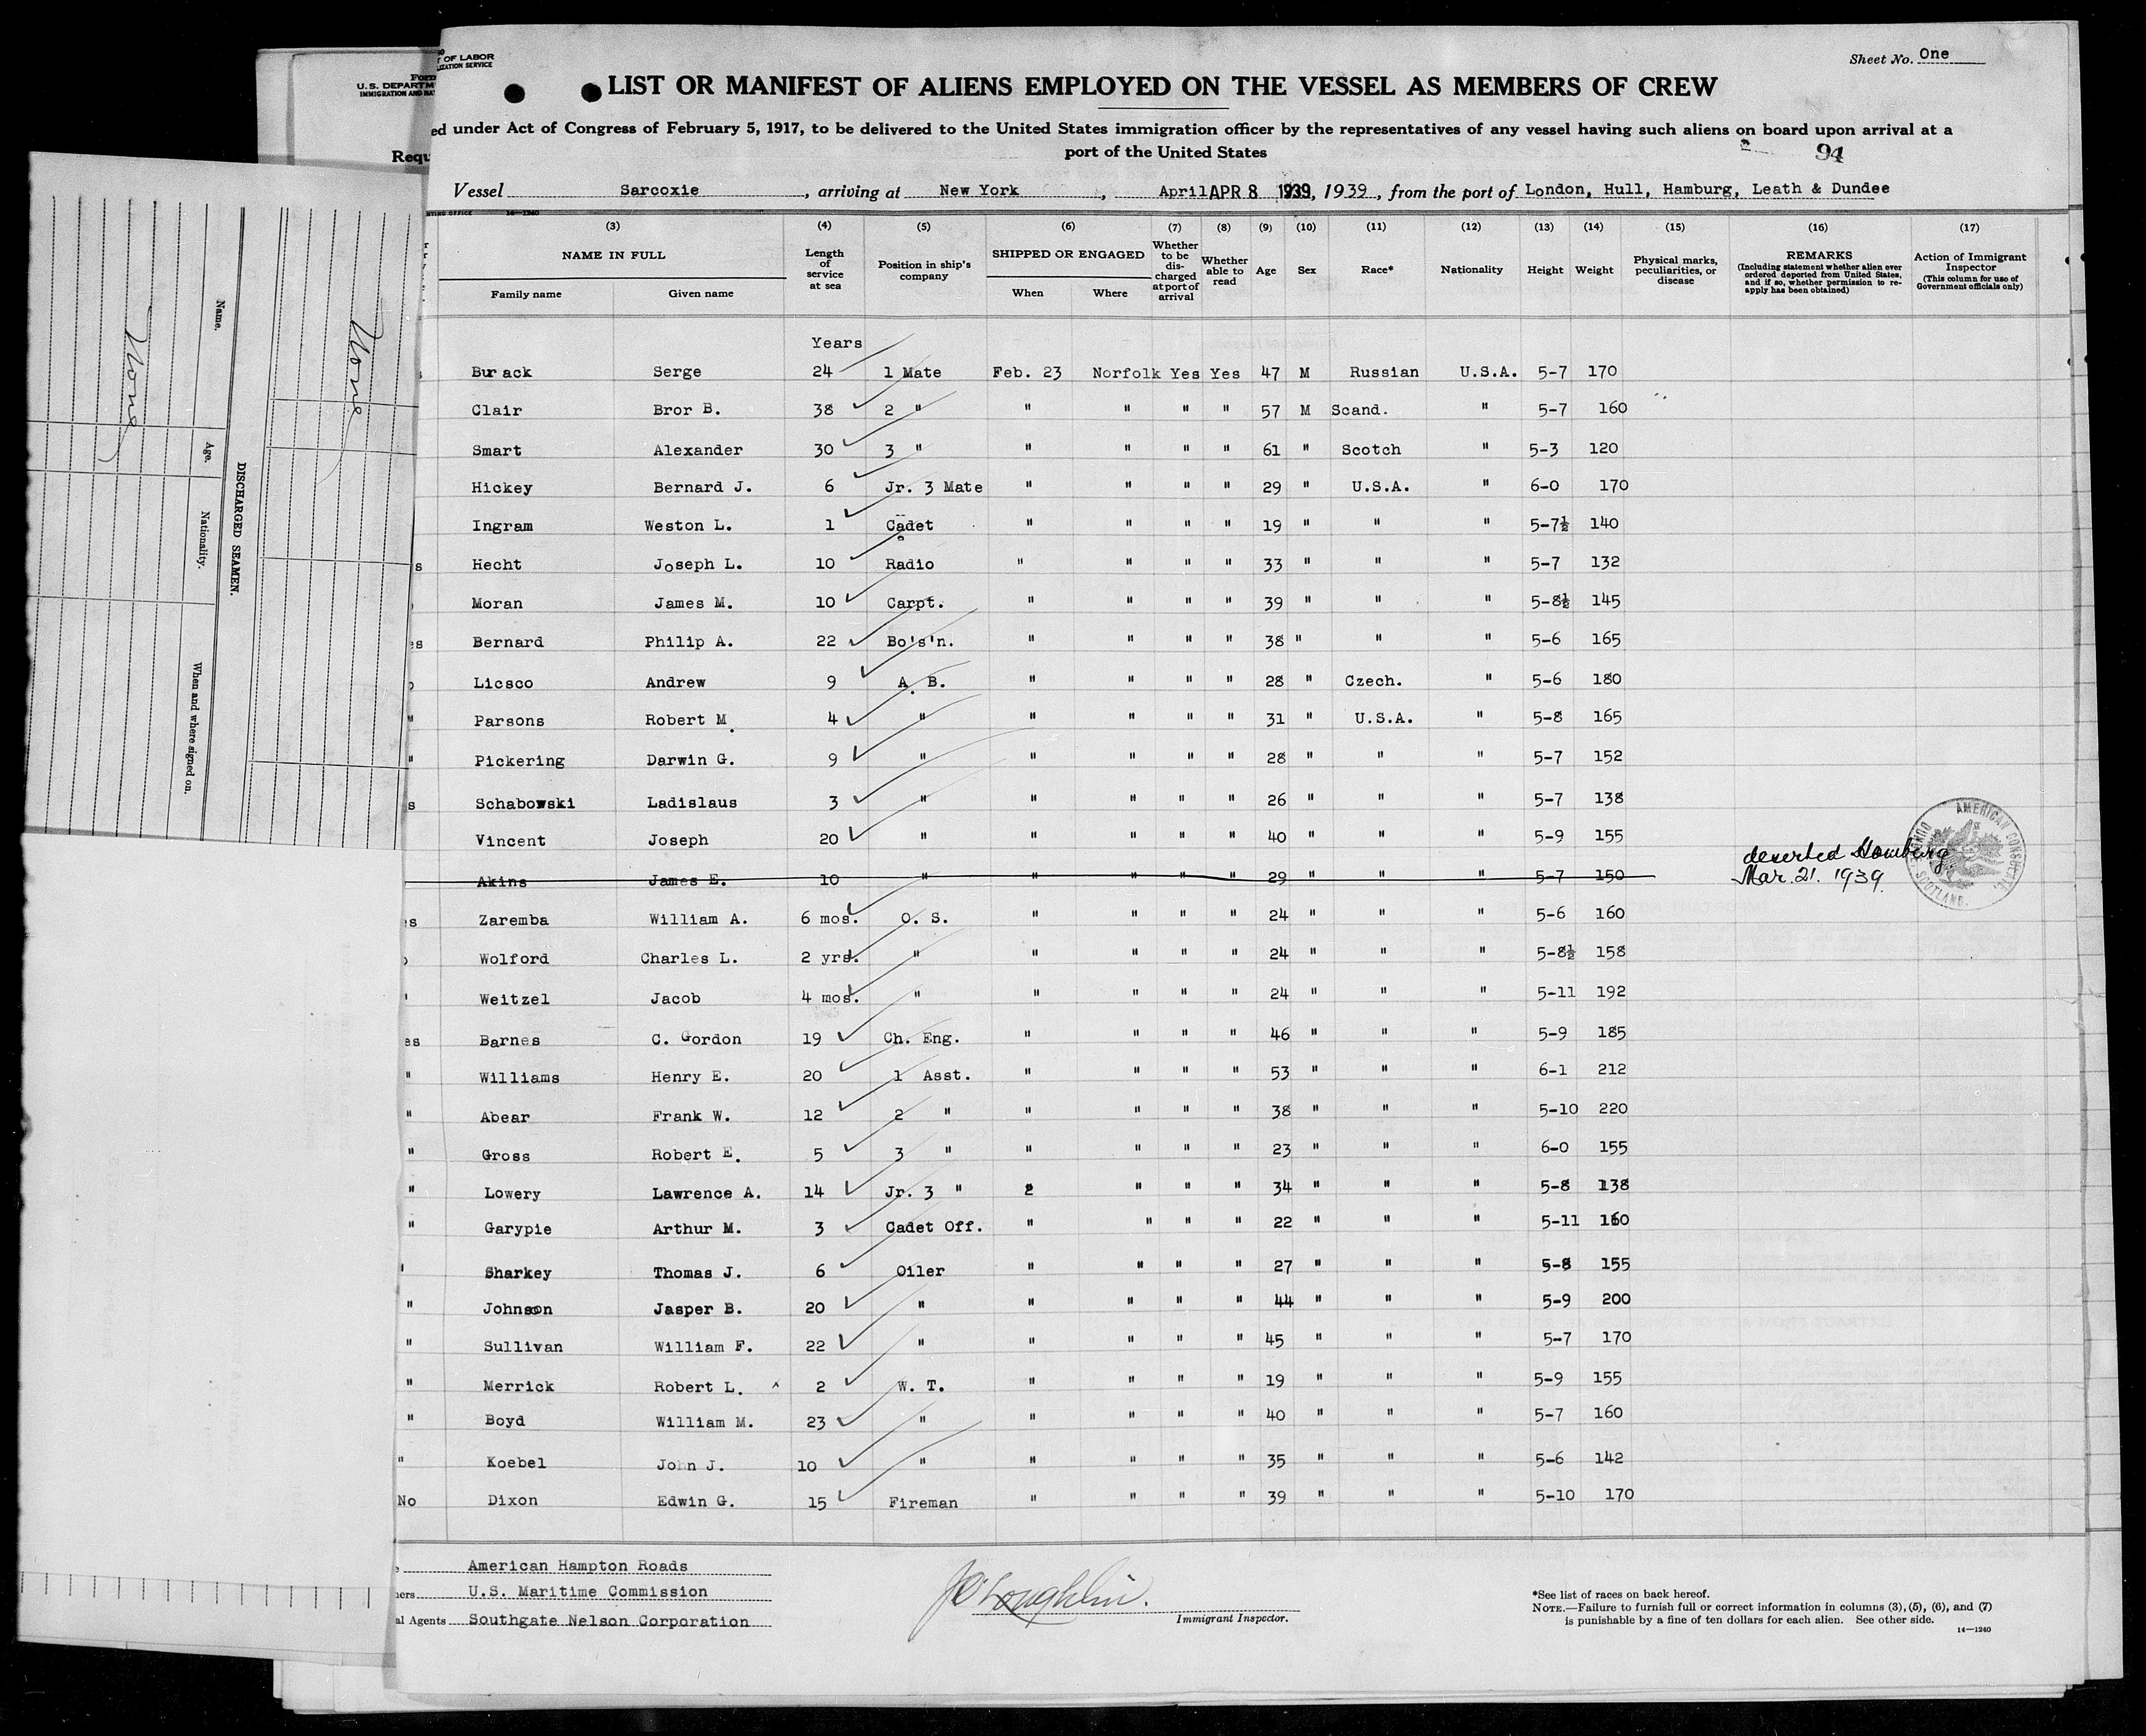 T OF LABOR
IZATION SERVICE
Sheet No. One
LIST OR MANIFEST OF ALIENS EMPLOYED ON THE VESSEL AS MEMBERS OF CREW
ed under Act of Congress of February 5, 1917, to be delivered to the United States immigration officer by the representatives of any vessel having such aliens on board upon arrival at a
port of the United States
94
Vessel Sarcoxie, arriving at New York, April APR 8 1939, 1939, from the port of London, Hull, Hamburg, Leath & Dundee
NTING OFFICE 14—1240
(3) (4) (5) (6) (7) (8) (9) (10) (11) (12) (13) (14) (15) (16) (17)
NAME IN FULL
Family name Given name
Length of service at sea
Position in ship's company
SHIPPED OR ENGAGED
When Where
Whether to be discharged at port of arrival
Whether able to read
Age
Sex
Race*
Nationality
Height
Weight
Physical marks, peculiarities, or disease
REMARKS
(Including statement whether alien ever ordered deported from United States, and if so, whether permission to reapply has been obtained)
Action of Immigrant Inspector
(This column for use of Government officials only)
Years
Burack Serge 24 1 Mate Feb. 23 Norfolk Yes Yes 47 M Russian U.S.A. 5-7 170
Clair Bror B. 38 2 " " " " " 57 M Scand. " 5-7 160
Smart Alexander 30 3 " " " " " 61 " Scotch " 5-3 120
Hickey Bernard J. 6 Jr. 3 Mate " " " " 29 " U.S.A. " 6-0 170
Ingram Weston L. 1 Cadet " " " " 19 " " " 5-7½ 140
s Hecht Joseph L. 10 Radio " " " " 33 " " " 5-7 132
Moran James M. 10 Carpt. " " " " 39 " " " 5-8½ 145
es Bernard Philip A. 22 Bo's'n. " " " " 38 " " " 5-6 165
Licsco Andrew 9 A. B. " " " " 28 " Czech. " 5-6 180
" Parsons Robert M. 4 " " " " " 31 " U.S.A. " 5-8 165
" Pickering Darwin G. 9 " " " " " 28 " " " 5-7 152
s Schabowski Ladislaus 3 " " " " " 26 " " " 5-7 138
Vincent Joseph 20 " " " " " 40 " " " 5-9 155
Akins James E. 10 " " " " " 29 " " " 5-7 150 deserted Hamburg.
Mar. 21. 1939.
AMERICAN CONSULATE, DUNDEE SCOTLAND.
es Zaremba William A. 6 mos. O. S. " " " " 24 " " " 5-6 160
Wolford Charles L. 2 yrs. " " " " " 24 " " " 5-8½ 158
' Weitzel Jacob 4 mos. " " " " " 24 " " " 5-11 192
es Barnes C. Gordon 19 Ch. Eng. " " " " 46 " " " 5-9 185
" Williams Henry E. 20 1 Asst. " " " " 53 " " " 6-1 212
" Abear Frank W. 12 2 " " " " " 38 " " " 5-10 220
" Gross Robert E. 5 3 " " " " " 23 " " " 6-0 155
" Lowery Lawrence A. 14 Jr. 3 " 2 " " " 34 " " " 5-8 138
" Garypie Arthur M. 3 Cadet Off. " " " " 22 " " " 5-11 160
' Sharkey Thomas J. 6 Oiler " " " " 27 " " " 5-8 155
" Johnson Jasper B. 20 " " " " " 44 " " " 5-9 200
" Sullivan William F. 22 " " " " " 45 " " " 5-7 170
" Merrick Robert L. 2 W. T. " " " " 19 " " " 5-9 155
" Boyd William M. 23 " " " " " 40 " " " 5-7 160
" Koebel John J. 10 " " " " " 35 " " " 5-6 142
No Dixon Edwin G. 15 Fireman " " " " 39 " " " 5-10 170
American Hampton Roads
ners U.S. Maritime Commission
al Agents Southgate Nelson Corporation
J O'Loughlin.
Immigrant Inspector.
*See list of races on back hereof.
NOTE.—Failure to furnish full or correct information in columns (3), (5), (6), and (7)
is punishable by a fine of ten dollars for each alien. See other side.
14—1240
Form
U.S. DEPARTM
IMMIGRATION AND NAT
Requ
None
DISCHARGED SEAMEN.
Name. Age. Nationality. When and where signed on.
None